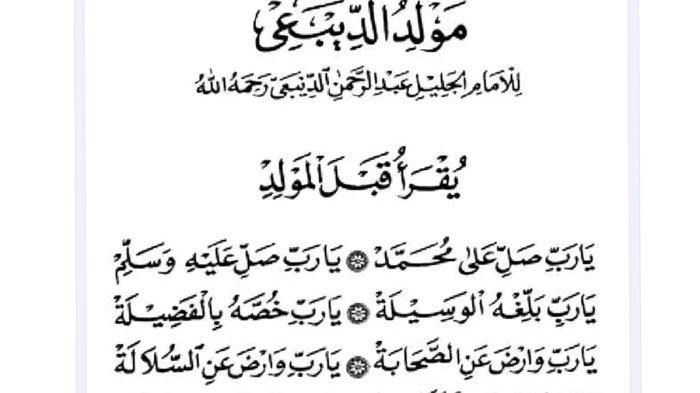 مَوْلِدُ الدِّيْبَعِيْ
لِلْاِمَامِ الْجَلِيْلِ عَبْدِ الرَّحْمٰنِ الدِّيْبَعِيّ رَحِمَهُ اللهُ
يُقْرَأُ قَبْلَ الْمَوْلِدِ
يَارَبِّ صَلِّ عَلٰى مُحَمَّدْ ۞ يَارَبِّ صَلِّ عَلَيْهِ وَسَلِّمْ
يَارَبِّ بَلِّغْهُ الْوَسِيْلَةْ ۞ يَارَبِّ خُصَّهُ بِالْفَضِيْلَةْ
يَارَبِّ وَارْضَ عَنِ الصَّحَابَةْ ۞ يَارَبِّ وَارْضَ عَنِ السُّلَالَةْ